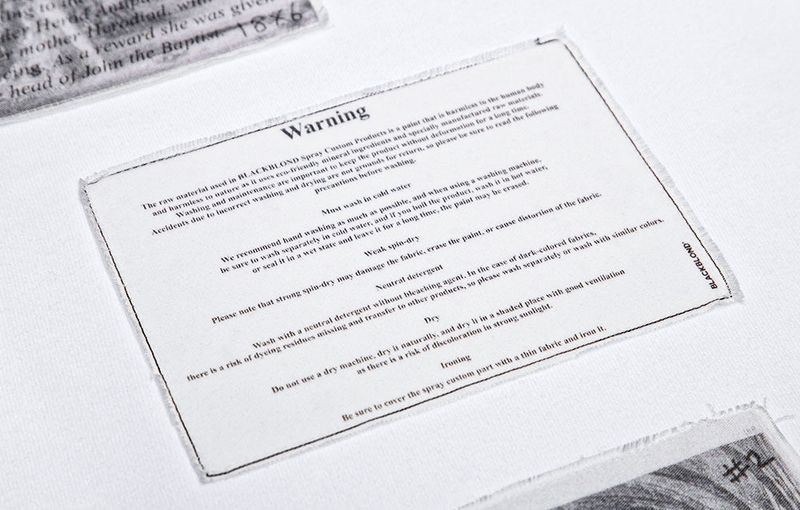 ling to the
der Herod Antipas, with
er mother Herodiad, with
cing. As a reward she was given
e head of John the Baptist. 1876
Warning
The raw material used in BLACKBLOND Spray Custom Products is a paint that is harmless to the human body
and harmless to nature as it uses eco-friendly mineral ingredients and specially manufactured raw materials.
Washing and maintenance are important to keep the product without deformation for a long time.
Accidents due to incorrect washing and drying are not grounds for return, so please be sure to read the following
precautions before washing.
Must wash in cold water
We recommend hand washing as much as possible, and when using a washing machine,
be sure to wash separately in cold water, and if you boil the product, wash it in hot water,
or seal it in a wet state and leave it for a long time, the paint may be erased.
Weak spin-dry
Please note that strong spin-dry may damage the fabric, erase the paint, or cause distortion of the fabric.
Neutral detergent
Wash with a neutral detergent without bleaching agent. In the case of dark-colored fabrics,
there is a risk of dyeing residues missing and transfer to other products, so please wash separately or wash with similar colors.
Dry
Do not use a dry machine, dry it naturally, and dry it in a shaded place with good ventilation
as there is a risk of discoloration in strong sunlight.
Ironing
Be sure to cover the spray custom part with a thin fabric and iron it.
BLACKBLOND
#2